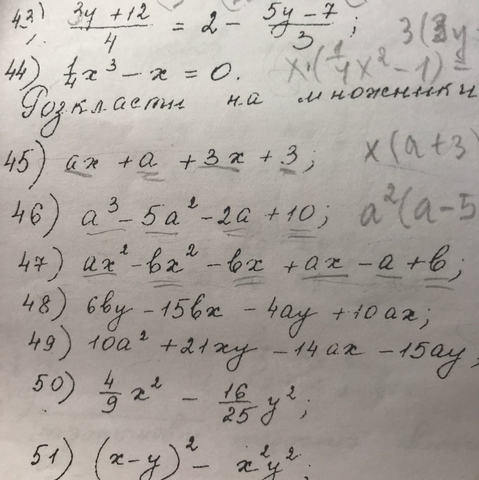 43) (3y + 12)/4 = 2 - (5y - 7)/3 ; 3(
44) 1/4 x³ - x = 0. x·(1/4 x² - 1)
Розкласти на множники
45) ax + a + 3x + 3 ; x(a+3)
46) a³ - 5a² - 2a + 10 ; a²(a-5
47) ax² - bx² - bx + ax - a + b ;
48) 6by - 15bx - 4ay + 10ax ;
49) 10a² + 21xy - 14ax - 15ay ;
50) 4/9 x² - 16/25 y² ;
51) (x-y)² - x²y² ;